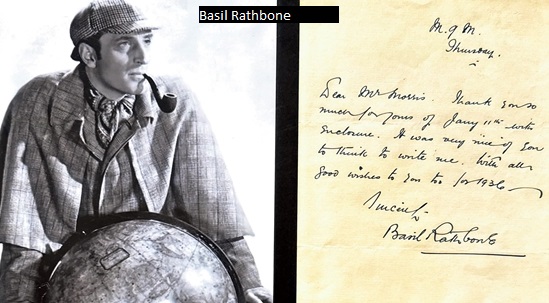 Basil Rathbone
M. G. M.
Thursday.
Dear Mr Morris. Thank you so
much for yours of Jany 11th with
enclosure. It was very nice of you
to think to write me. With all
good wishes to you too for 1936
Sincerely
Basil Rathbone